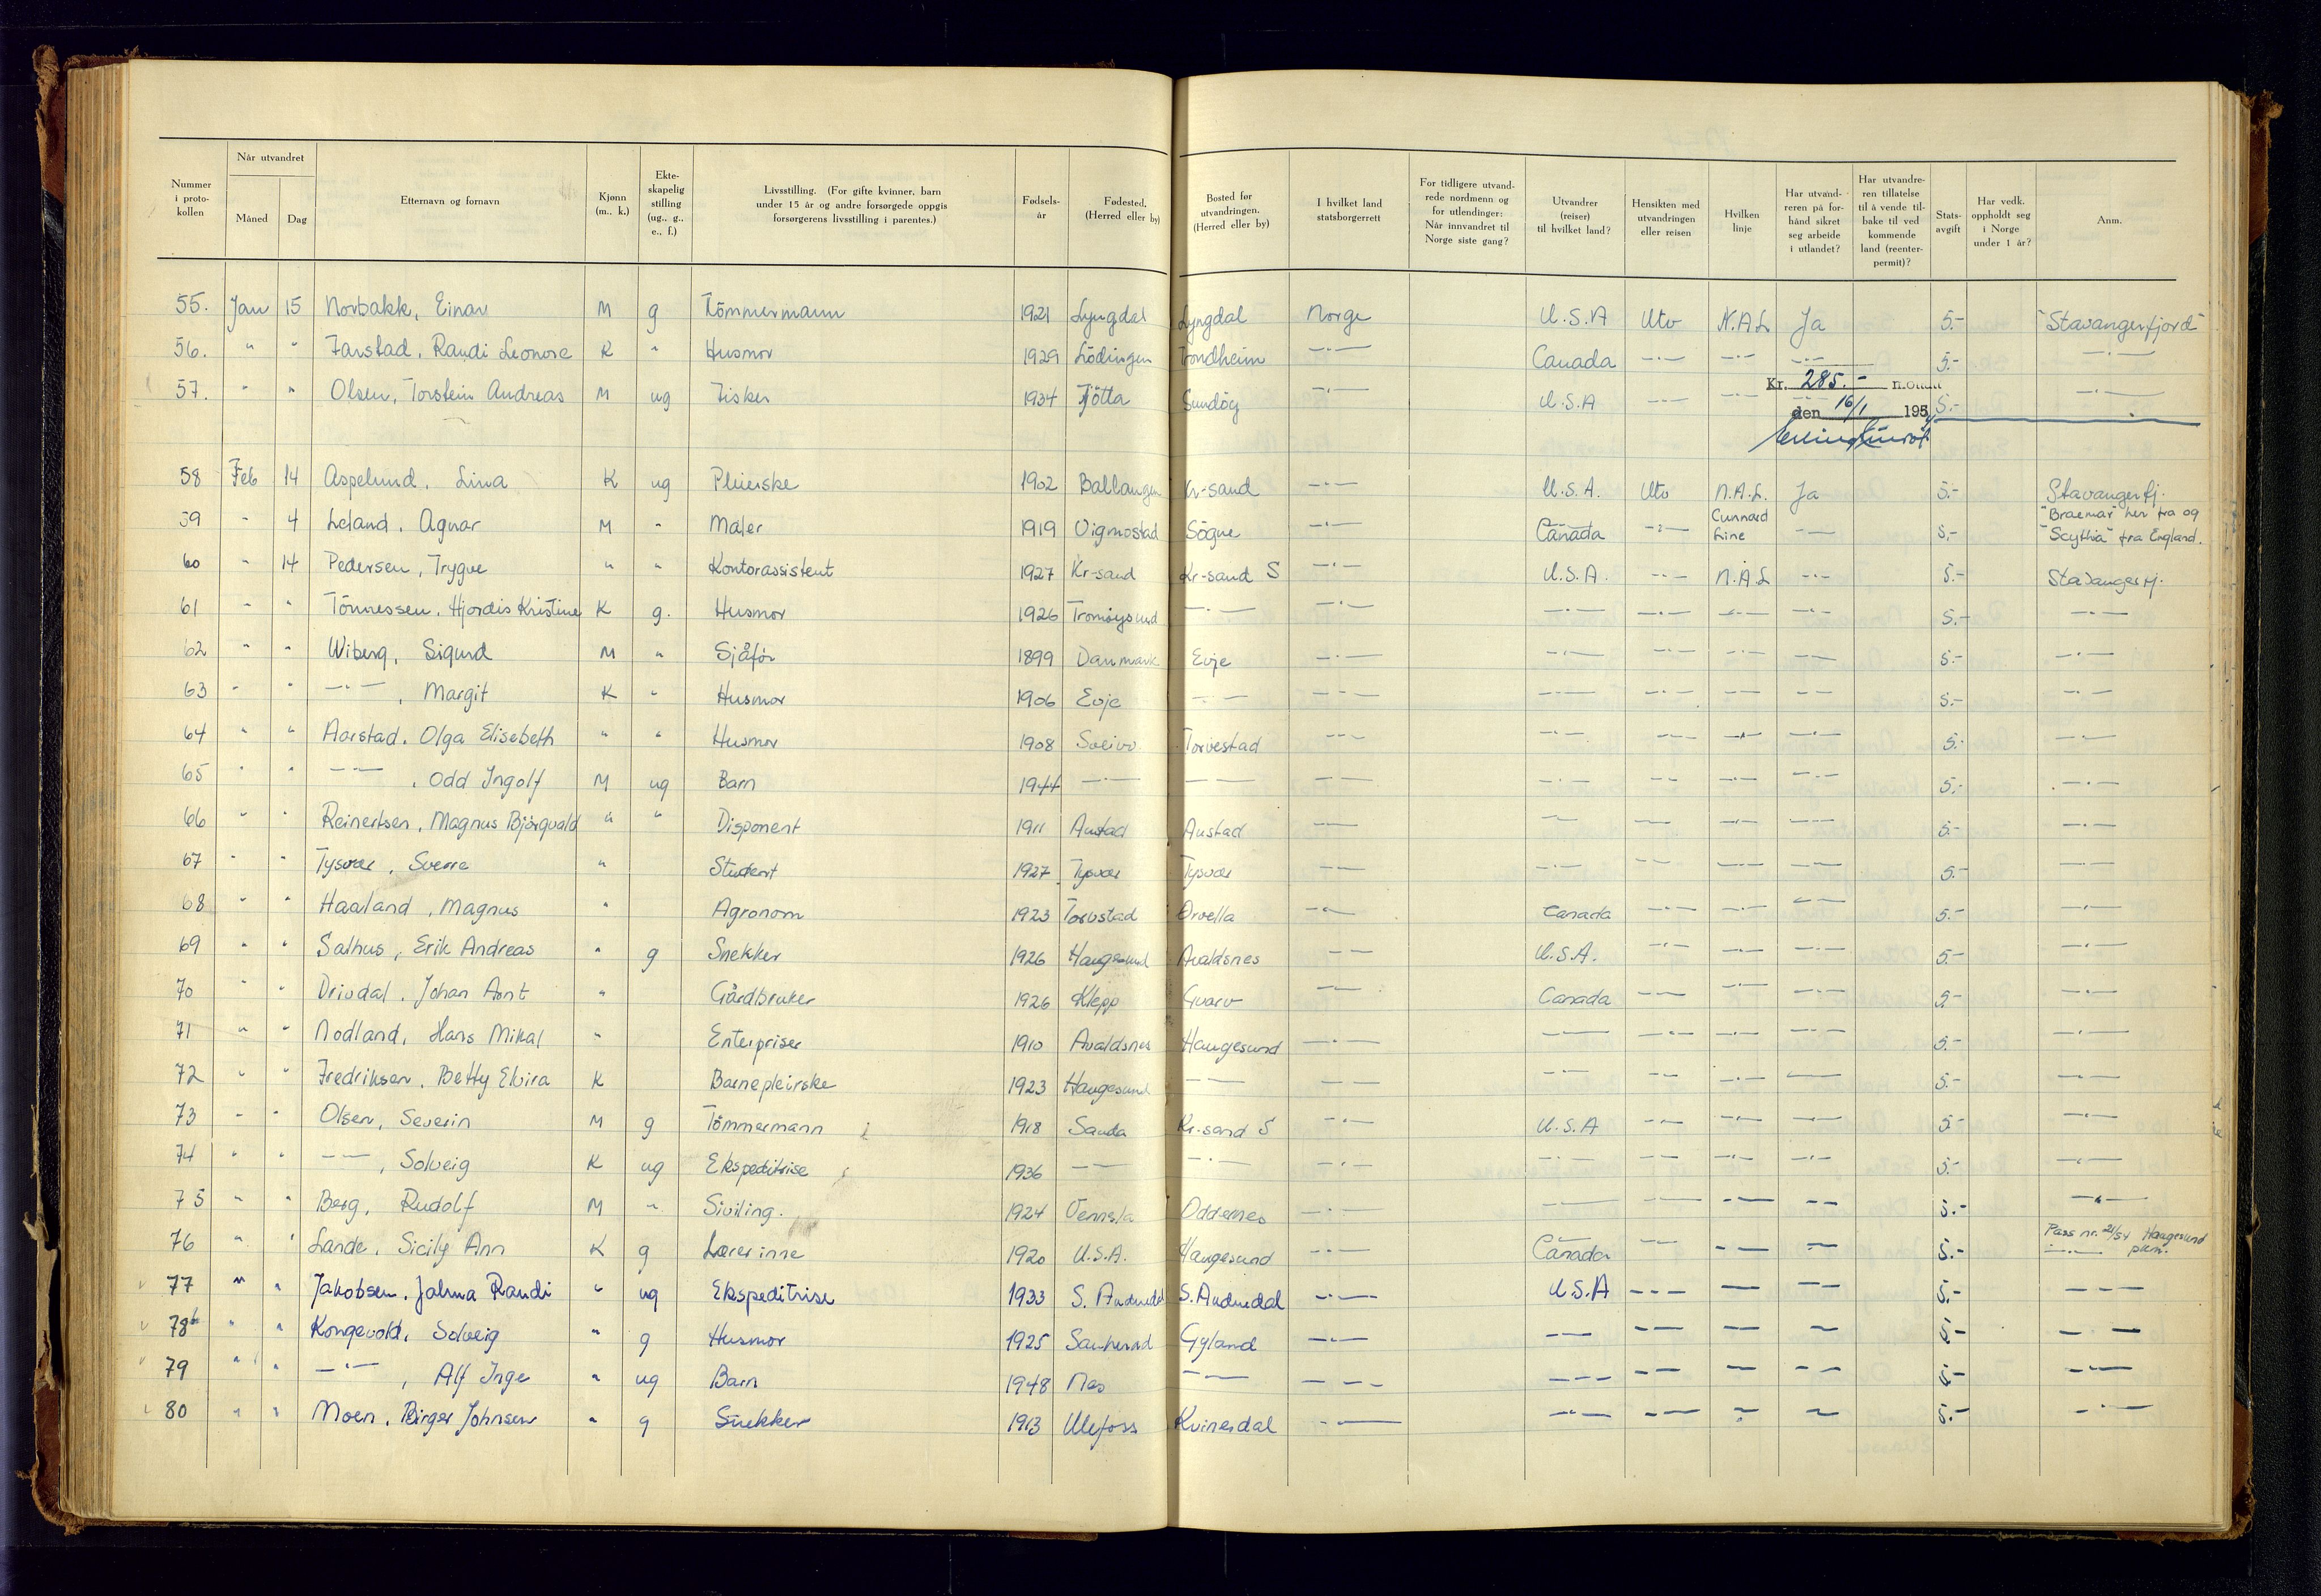 Nummer i proto- kollen | Når utvandret Måned | Dag | Etternavn og fornavn | Kjønn (m.. k.) | Ekte- skapelig stilling (ug., g., e., f.) | Livsstilling. (For gifte kvinner, barn under 15 år og andre forsørgede oppgis forsørgerens livsstilling i parentes.) | Fødsels- år | Fødested. (Herred eller by) | Bosted før utvandringen. (Herred eller by) | I hvilket land statsborgerrett | For tidligere utvand- rede nordmenn og for utlendinger: Når innvandret til Norge siste gang? | Utvandrer (reiser) til hvilket land? | Hensikten med utvandringen eller reisen | Hvilken linje | Har utvand- reren på for- hånd sikret seg arbeide i utlandet? | Har utvandre- ren tillatelse til å vende til- bake til ved kommende land (reenter- permit)? | Stats- avgift | Har vedk. oppholdt seg i Norge under 1 år? | Anm.
55. Jan 15 Norbakk, Einar M g Tömmermann 1921 Lyngdal Lyngdal Norge U.S.A Utv N.A.L Ja 5.- "Stavangerfjord"
56. " " Farstad, Randi Leonore K " Husmor 1929 Lödingen Trondheim —·— Canada —·— —·— —·— 5.- —·—
57. " " Olsen, Torstein Andreas M ug Fisker 1934 Tjötta Sundöy —·— U.S.A —·— —·— 5.- —·—
Kr. 285.- mottatt
den 16/1 1954
58 Feb 14 Aspelund, Lina K ug Pleierske 1902 Ballangen Kr-sand —·— U.S.A. Utv N.A.L. Ja 5.- Stavangerfj.
59 " 4 Leland, Agnar M " Maler 1919 Vigmostad Sögne —·— Canada —·— Cunnard Line —·— 5.- "Braemar" her fra og "Scythia" fra England.
60 " 14 Pedersen, Trygve " " Kontorassistent 1927 Kr-sand Kr-sand S —·— U.S.A. —·— N.A.L —·— 5.- Stavangerfj.
61 " " Tönnessen, Hjördis Kristine K g. Husmor 1926 Tromöysund —·— —·— —·— —·— —·— —·— 5.- —·—
62 " " Wiberg, Sigurd M " Sjåför 1899 Danmark Evje —·— —·— —·— —·— —·— 5.- —·—
63 " " —·—, Margit K " Husmor 1906 Evje —·— —·— —·— —·— —·— —·— 5.- —·—
64 " " Aarstad, Olga Elisebeth " " Husmor 1908 Torvestad —·— —·— —·— —·— —·— 5.- —·—
65 " " —·—, Odd Ingolf M ug Barn 1944 —·— —·— —·— —·— —·— —·— —·— 5.- —·—
66 " " Reinertsen, Magnus Björgvald " " Disponent 1911 Austad Austad —·— —·— —·— —·— —·— 5.- —·—
67 " " Tysvær, Sverre " Student 1927 Tysvær Tysvær —·— —·— —·— —·— —·— 5.- —·—
68 " " Haaland, Magnus " Agronom 1923 Torvstad —·— Canada —·— —·— —·— 5.- —·—
69 " " Salhus, Erik Andreas " g Snekker 1926 Haugesund Avaldsnes —·— U.S.A. —·— —·— —·— 5.- —·—
70 " " Drivdal, Johan Arnt " Gårdbruker 1926 Klepp Gvarv —·— Canada —·— —·— —·— 5.- —·—
71 " " Nodland, Hans Mikal " Enterpriser 1910 Avaldsnes Haugesund —·— —·— —·— —·— —·— 5.- —·—
72 " " Fredriksen, Betty Elvira K Barnepleirske 1923 Haugesund —·— —·— —·— —·— —·— —·— 5.- —·—
73 " " Olsen, Severin M g Tömmermann 1918 Sauda Kr-sand S —·— U.S.A —·— —·— —·— 5.- —·—
74 " " —·—, Solveig K ug Ekspeditrise 1936 —·— —·— —·— —·— —·— —·— —·— 5.- —·—
75 " " Berg, Rudolf M " Siviling. 1924 Vennesla Oddernes —·— —·— —·— —·— —·— 5.- —·—
76 " " Lande, Sicily Ann K g Lærerinne 1920 U.S.A. Haugesund —·— Canada —·— —·— —·— 5.- Pass nr. 21/54 Haugesund pkm.
77 " " Jakobsen, Jalma Randi " ug Ekspeditrise 1933 S. Audnedal S. Audnedal —·— U.S.A —·— —·— —·— 5.- —·—
78 " " Kongevold, Solveig " g Husmor 1925 Sauherad Gyland —·— —·— —·— —·— —·— 5.- —·—
79 " " —·—, Alf Inge " ug Barn 1948 Nes —·— —·— —·— —·— —·— —·— 5.- —·—
80 " " Moen, Birger Johnsen " g Snekker 1913 Ulefoss Kvinesdal —·— —·— —·— —·— —·— 5.- —·—